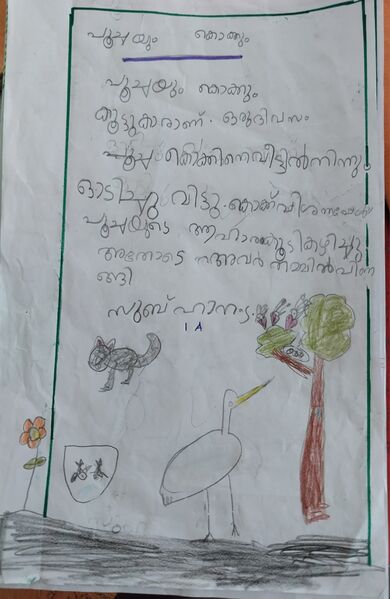 പൂച്ചയും കൊക്കും
പൂച്ചയും കൊക്കും
കൂട്ടുകാരാണ്. ഒരുദിവസം
പൂച്ച കൊക്കിനെവീട്ടിൽനിന്നു
ഓടിച്ചു വിട്ടു. കൊക്ക്
പൂച്ചയുടെ ആഹാരംകൂടികഴിച്ചു.
അതോടെ അവർ തമ്മിൽപിണ
ങ്ങി
സുബ്ഹാന. ട.
1 A